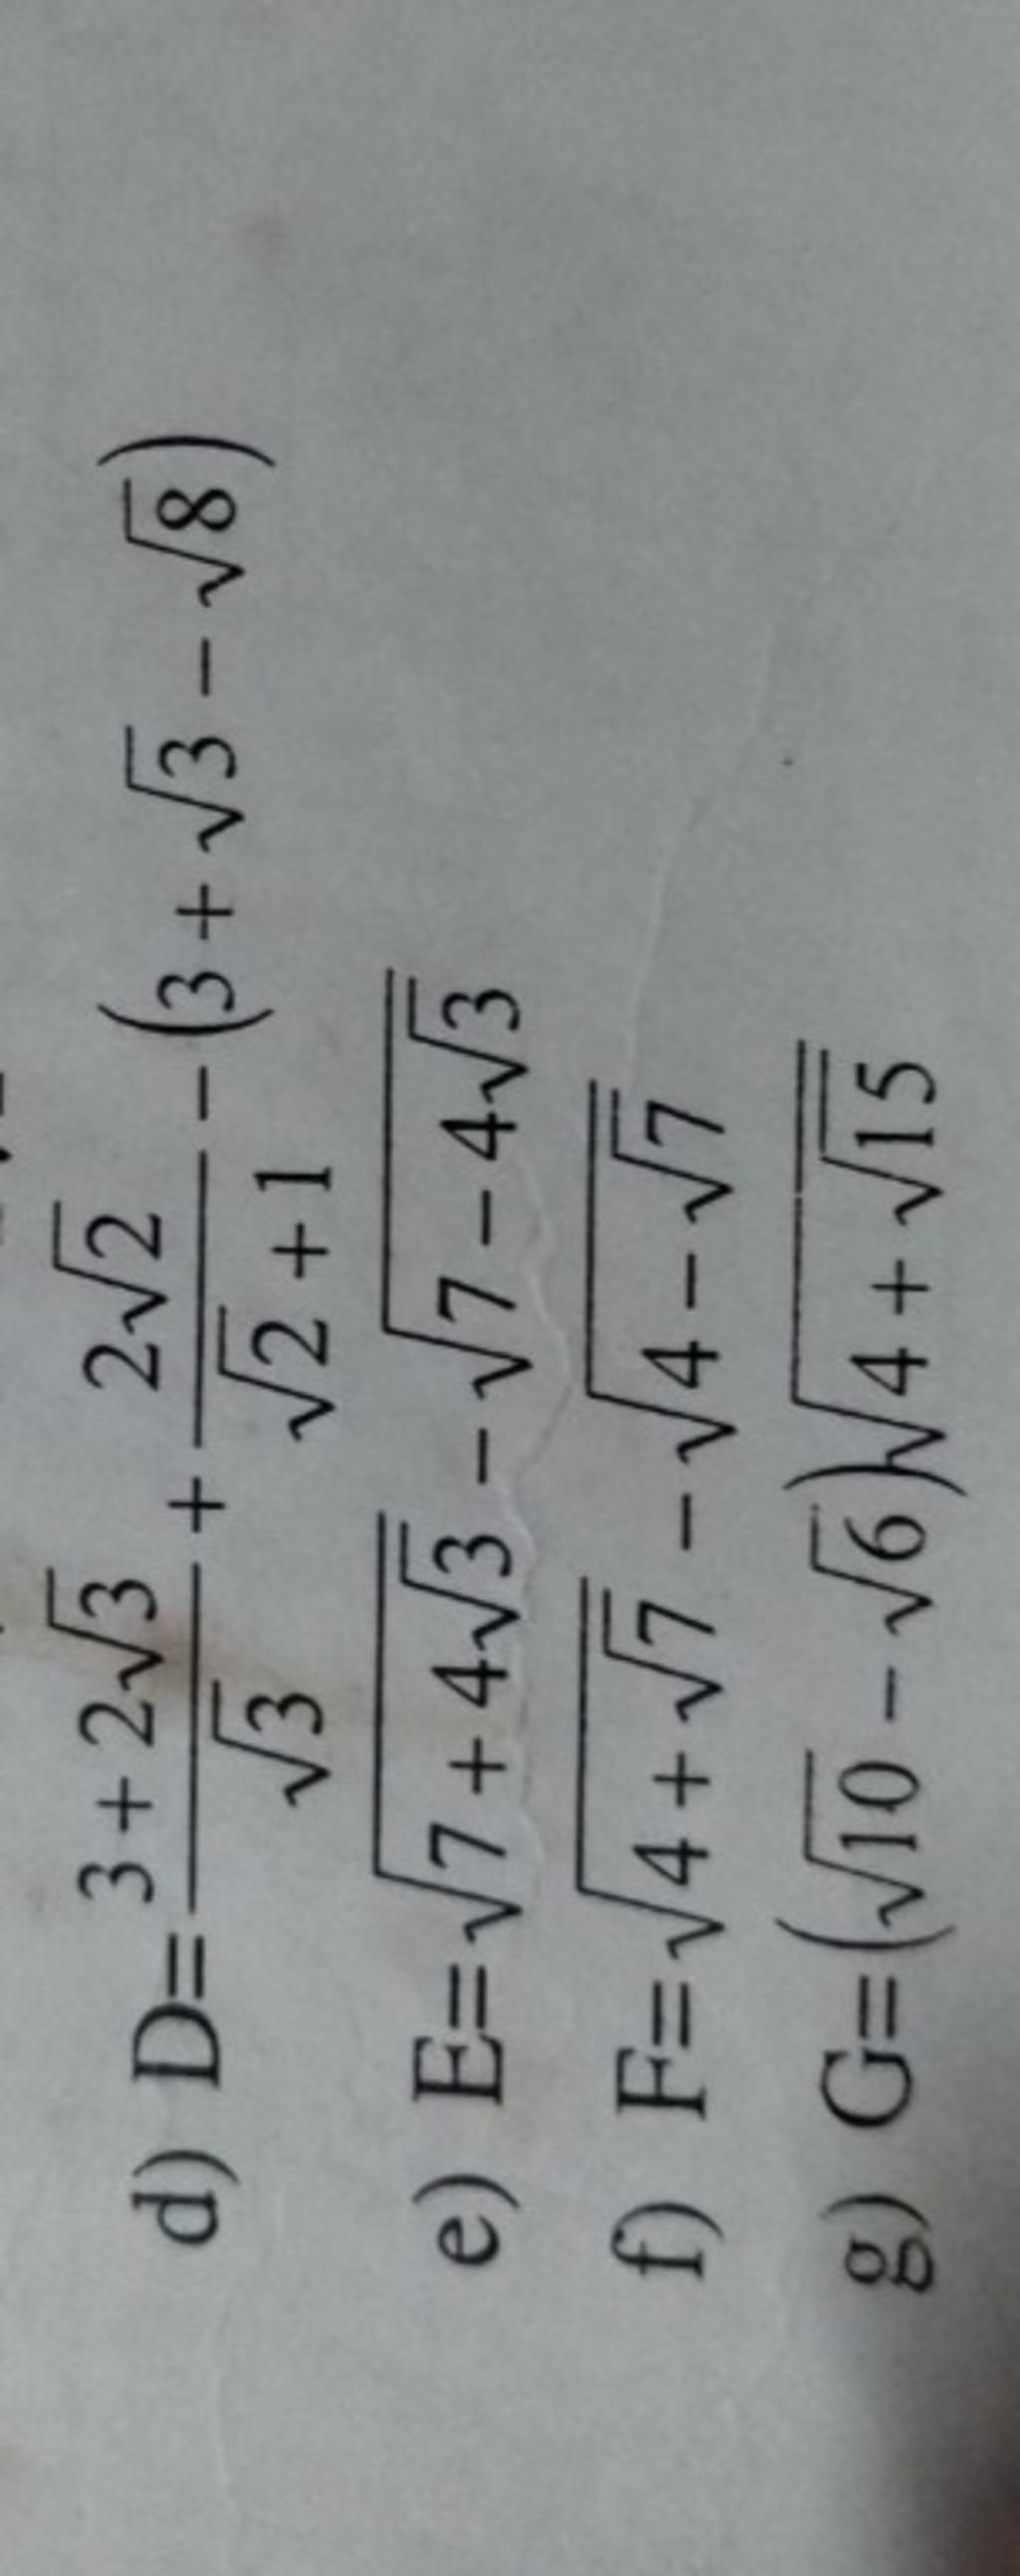 d) D= \frac{3+2\sqrt{3}}{\sqrt{3}} + \frac{2\sqrt{2}}{\sqrt{2}+1} - (3+\sqrt{3}-\sqrt{8})
e) E=\sqrt{7+4\sqrt{3}} - \sqrt{7-4\sqrt{3}}
f) F=\sqrt{4+\sqrt{7}} - \sqrt{4-\sqrt{7}}
g) G=(\sqrt{10}-\sqrt{6})\sqrt{4+\sqrt{15}}